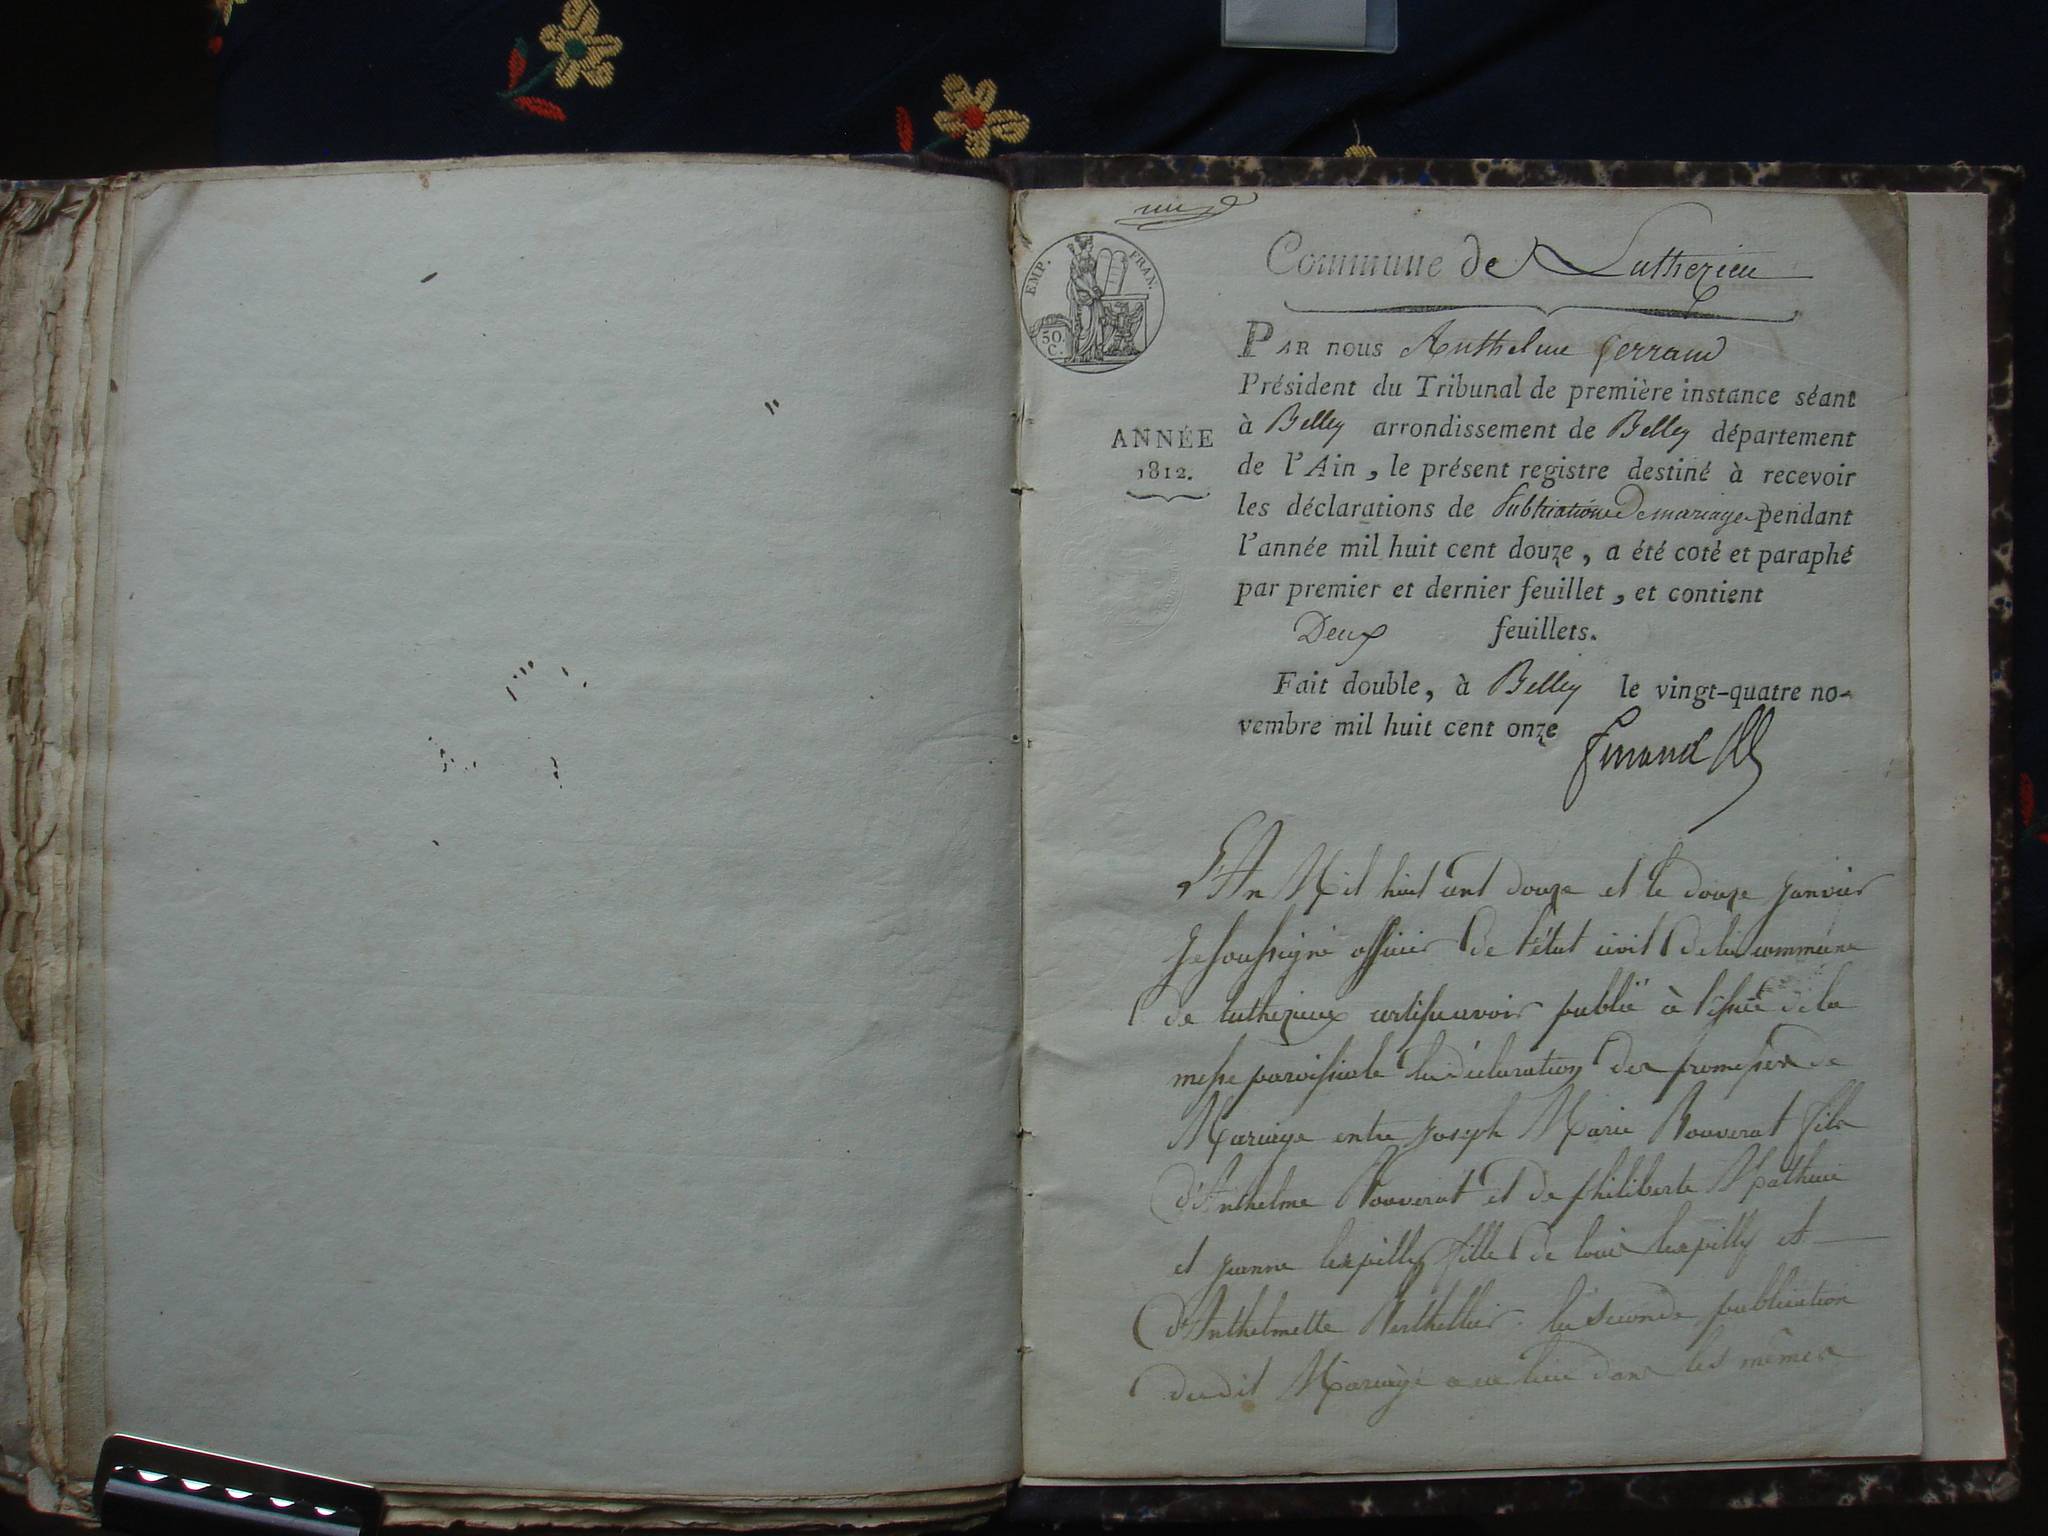 une
EMP. FRAN.
50.
C.
Commune de Luthezieu
PAR NOUS Anthelme ferrand
Président du Tribunal de première instance séant
à Belley arrondissement de Belley département
ANNÉE
1812.
de l'Ain, le présent registre destiné à recevoir
les déclarations de Publication de mariage pendant
l'année mil huit cent douze, a été coté et paraphé
par premier et dernier feuillet, et contient
Deux feuillets.
Fait double, à Belley le vingt-quatre no-
vembre mil huit cent onze
ferrand
L'An Mil huit cent douze et le douze janvier
je soussigné officier de l'état civil de la commune
de luthezieux certifie avoir publié à l'issue de la
messe paroissiale la déclaration des promesses de
Mariage entre joseph Marie Bouverat fils
d'Anthelme Bouverat et de philiberte
et jeanne lespilly fille de louis lespilly et
d'Anthelmette Berthellier. la seconde publication
dudit Mariage a eu lieu dans les mêmes